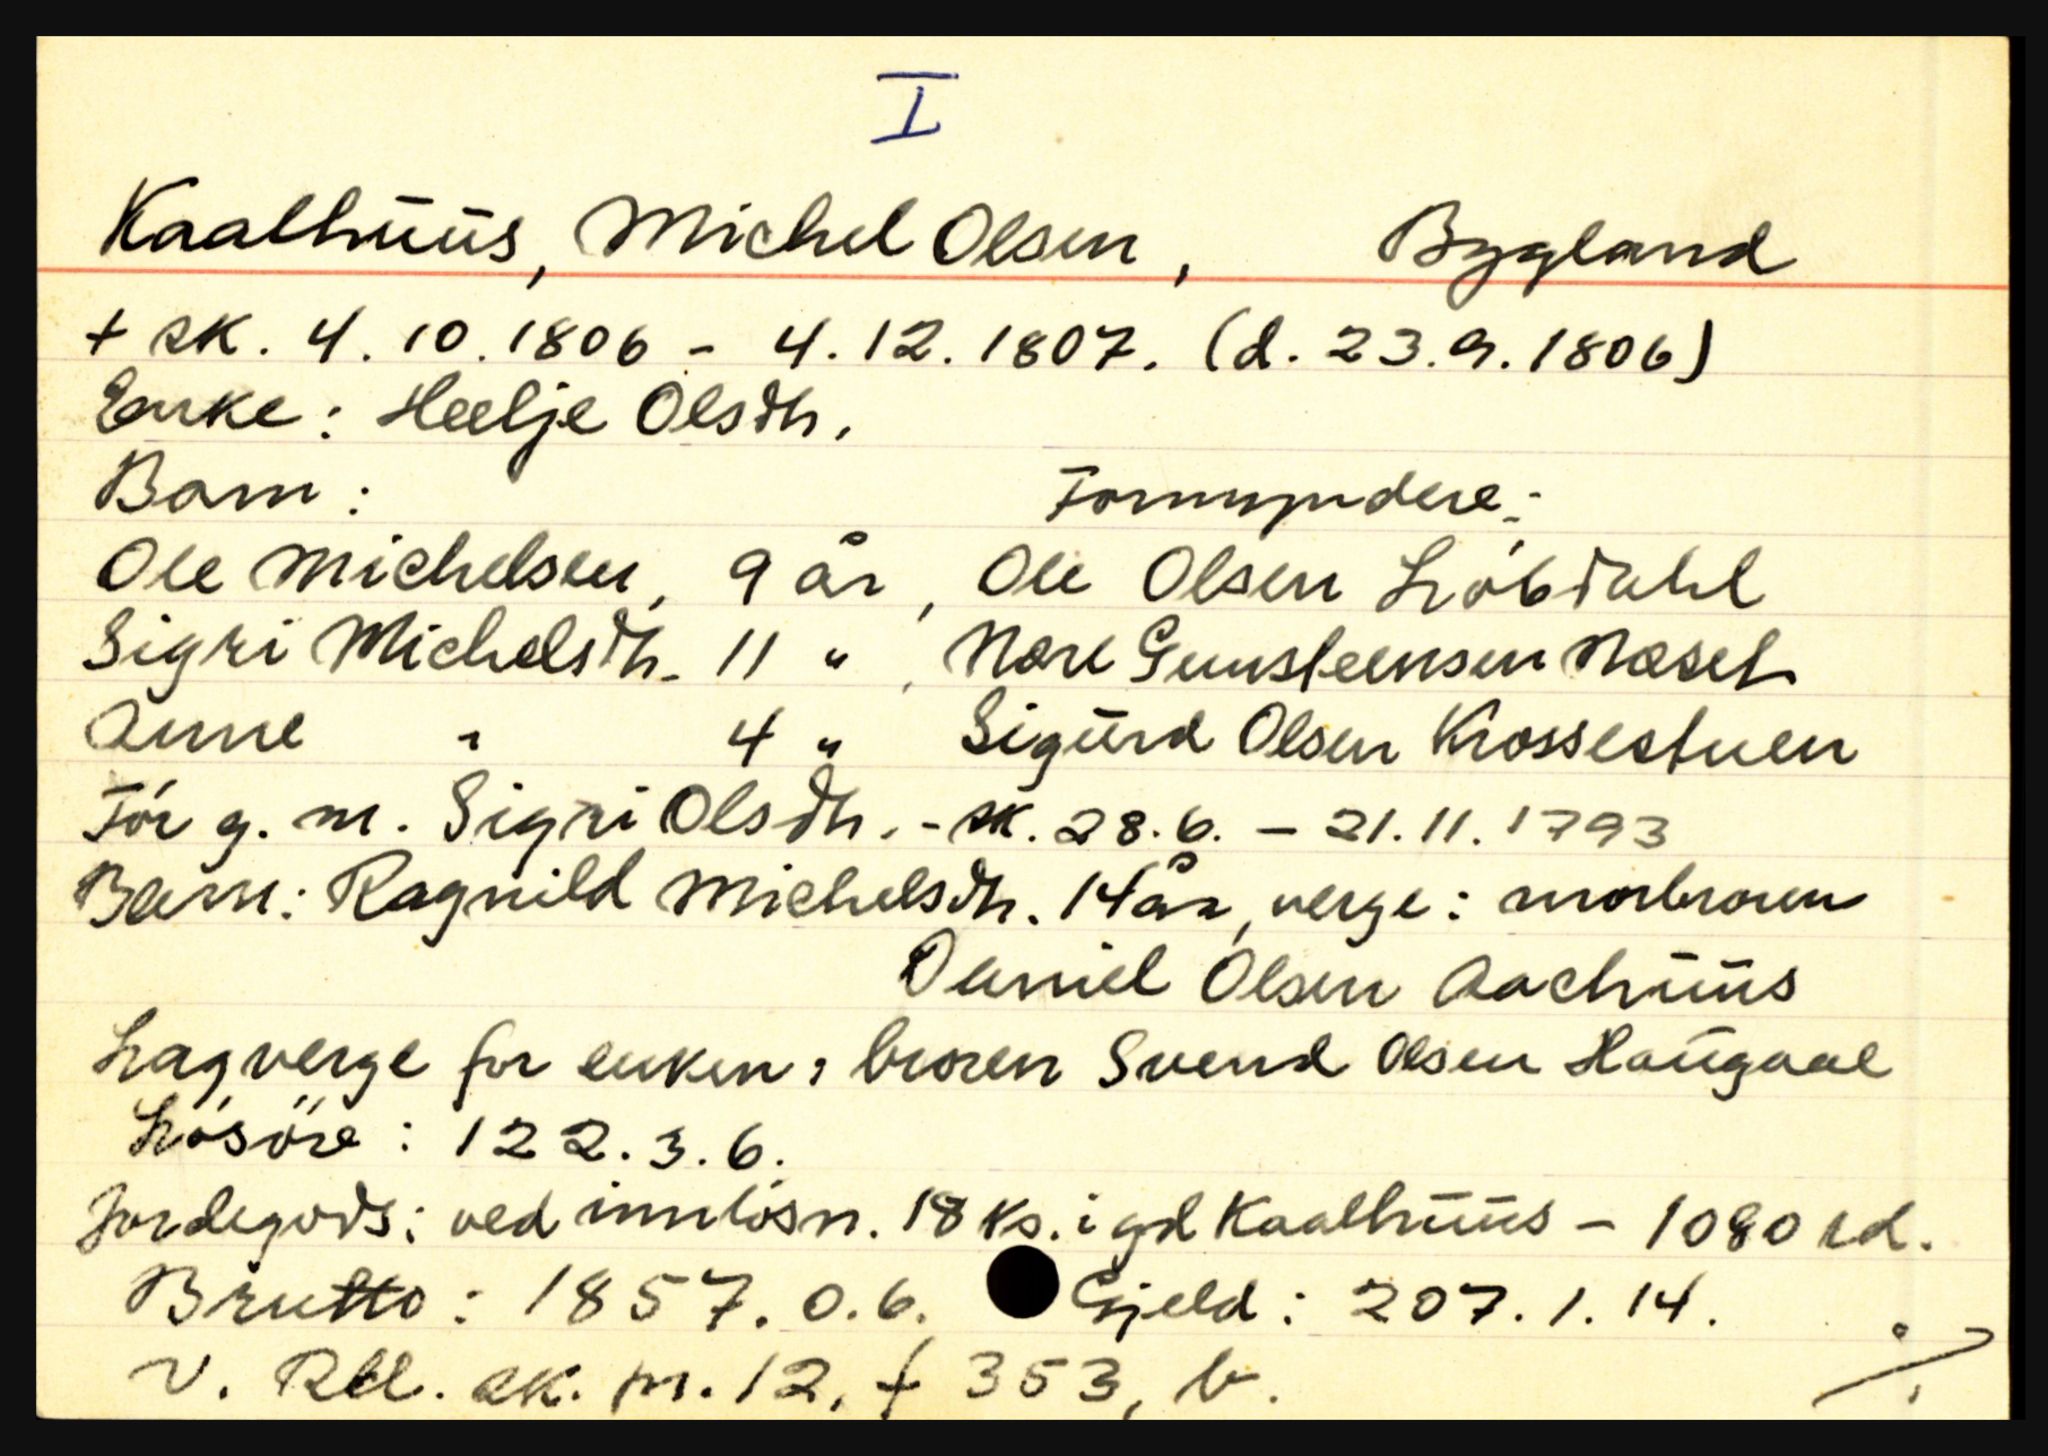 I
Kaalhūūs, Michel Olsen, Bygland
+ sk. 4.10.1806 - 4.12.1807. (d. 23.9.1806)
Enke: Heelje Olsdtr.
Barn: Formyndere:
Ole Michelsen, 9 år, Ole Olsen Lóbdahl
Sigri Michelsdtr. 11 ", Nare Gunsteensen Næset
Anne " 4 " Sigūrd Olsen Krossestuen
Fór g. m. Sigri Olsdtr. - sk. 28.6. - 21.11.1793
Barn: Ragnild Michelsdtr. 14 år, verge: morbroren
Daniel Olsen Aachūūs
Lagverge for enken: broren Svend Olsen Haūgaae
Lósöre: 122.3.6.
Jordegods: ved innlósn. 18 ks. i gd Kaalhūūs - 1080 rd.
Brutto: 1857.0.6. Gjeld: 207.1.14.
V. Rbl. sk. pr. 12, f 353, b.
./.